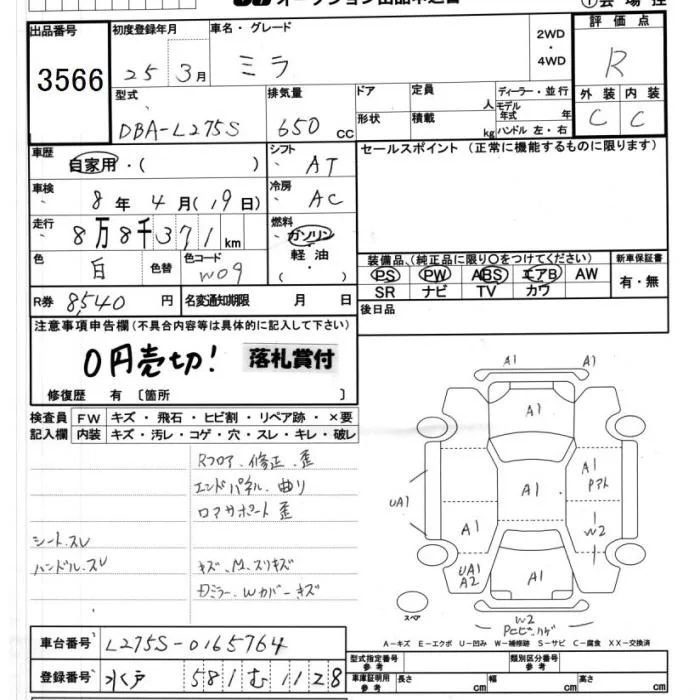 オークション出品申込書
①会場控
出品番号 初度登録年月 車名・グレード 2WD・4WD 評価点
3566 25年3月 ミラ R
型式 排気量 ドア 定員 人 ディーラー・並行 外装 内装
DBA-L275S 650cc 形状 積載 kg モデル年式 年 ハンドル 左・右 C C
車歴 自家用・( ) シフト AT セールスポイント(正常に機能するものに限ります)
車検 8年4月(19日) 冷房 AC
走行 8万8千371km 燃料 ガソリン・軽油・( )
色 白 色替 色コード W09
装備品、(純正品に限り〇をつけてください) 新車保証書
PS PW ABS エアB AW 有・無
SR ナビ TV カワ
R券 8,540円 名変通知期限 月 日 後日品
注意事項申告欄(不具合内容等は具体的に記入して下さい)
0円売切! 落札賞付
修復歴 有〔箇所 〕
検査員 FW キズ・飛石・ヒビ割・リペア跡・×要
記入欄 内装 キズ・汚レ・コゲ・穴・スレ・キレ・破レ
Rフロア、修正、歪
エンドパネル、曲り
ロアサポート 歪
シート、スレ
ハンドル、スレ
キズ、M、スリキズ
カバーキズ
A1 A1
A1
A1
Pアト
A1
UA1
A1
W2
UA1
A2
A1
スペア
W2
A-キズ E-エクボ U-凹み W-補修跡 S-サビ C-腐食 XX-交換済
車台番号 L275S-0165764
登録番号 水戸 581 む 1128
型式指定番号 参考 類別区分番号 参考
車庫証明用 参考 長さ cm 幅 cm 高さ cm